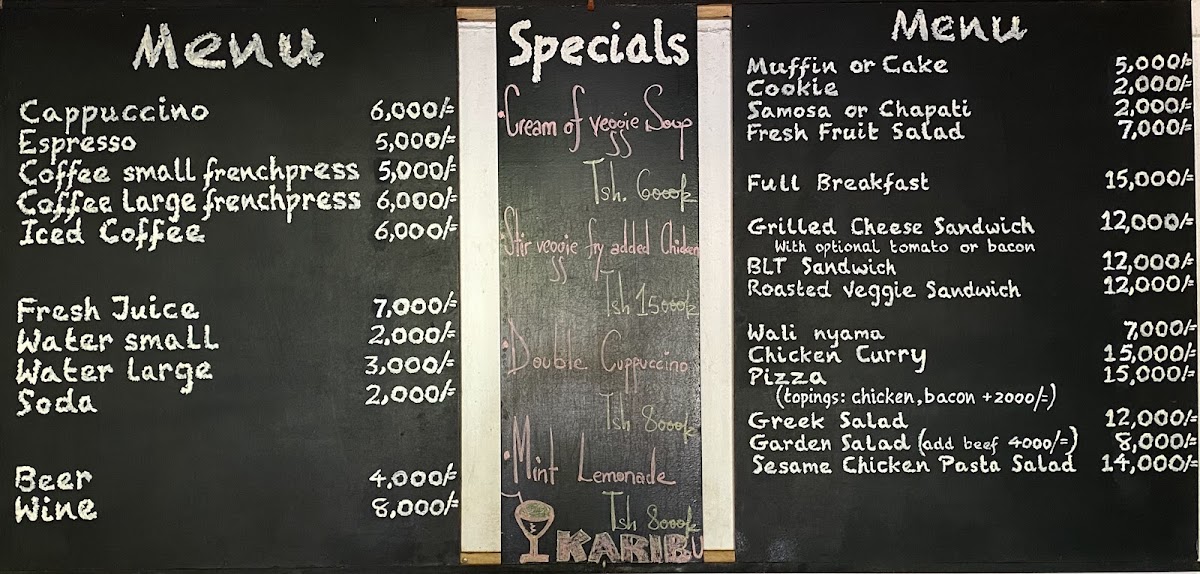 Menu
Cappuccino 6,000/=
Espresso 5,000/=
Coffee small frenchpress 5,000/=
Coffee large frenchpress 6,000/=
Iced Coffee 6,000/=
Fresh Juice 7,000/=
Water small 2,000/=
Water large 3,000/=
Soda 2,000/=
Beer 4,000/=
Wine 8,000/=
Specials
•Cream of veggie Soup
Tsh. 6000k
•Stir veggie fry added Chicken
Tsh 15000k
•Double Cuppuccino
Tsh 8000k
•Mint Lemonade
Tsh 8000k
KARIBU
Menu
Muffin or Cake 5,000/=
Cookie 2,000/=
Samosa or Chapati 2,000/=
Fresh Fruit Salad 7,000/=
Full Breakfast 15,000/=
Grilled Cheese Sandwich 12,000/=
With optional tomato or bacon
BLT Sandwich 12,000/=
Roasted Veggie Sandwich 12,000/=
Wali nyama 7,000/=
Chicken Curry 15,000/=
Pizza 15,000/=
(topings: chicken, bacon +2000/=)
Greek Salad 12,000/=
Garden Salad (add beef 4000/=) 8,000/=
Sesame Chicken Pasta Salad 14,000/=